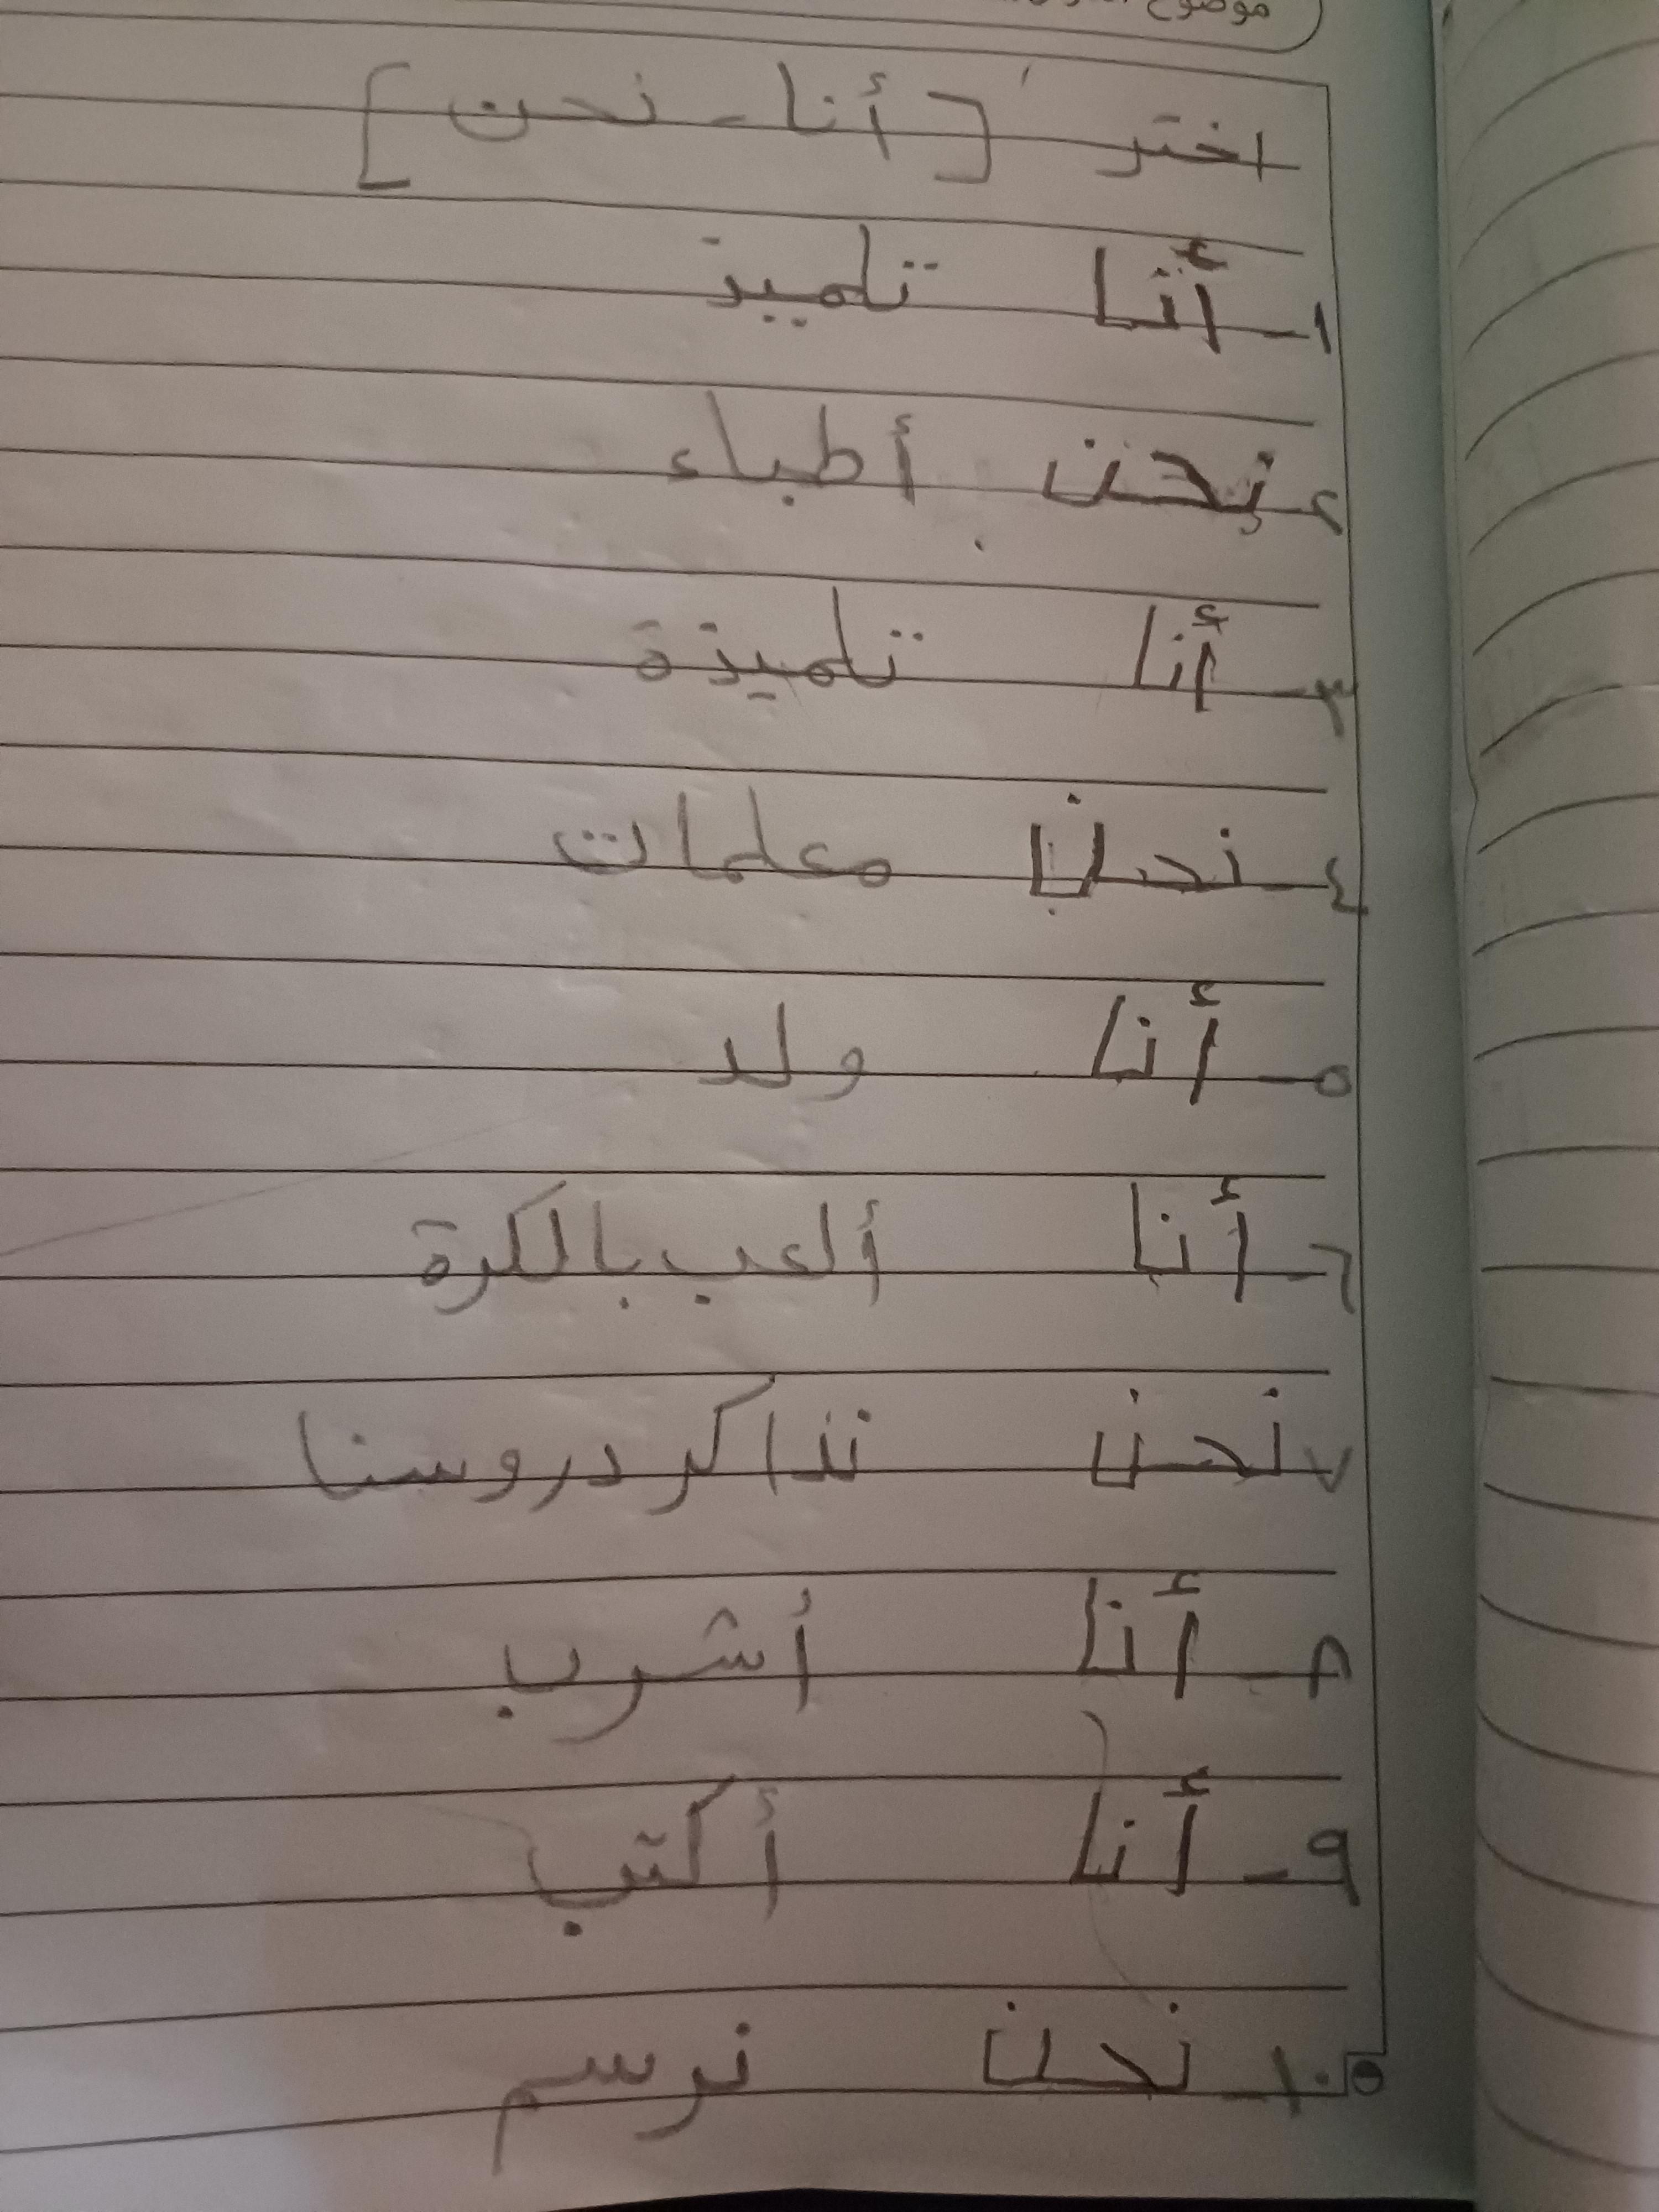 موضوع
اختر [أنا - نحن]
١- أنا تلميذ
٢- نحن أطباء
٣- أنا تلميذة
٤- نحن معلمات
٥- أنا ولد
٦- أنا ألعب بالكرة
٧- نحن نذاكر دروسنا
٨- أنا أشرب
٩- أنا أكتب
١٠- نحن نرسم